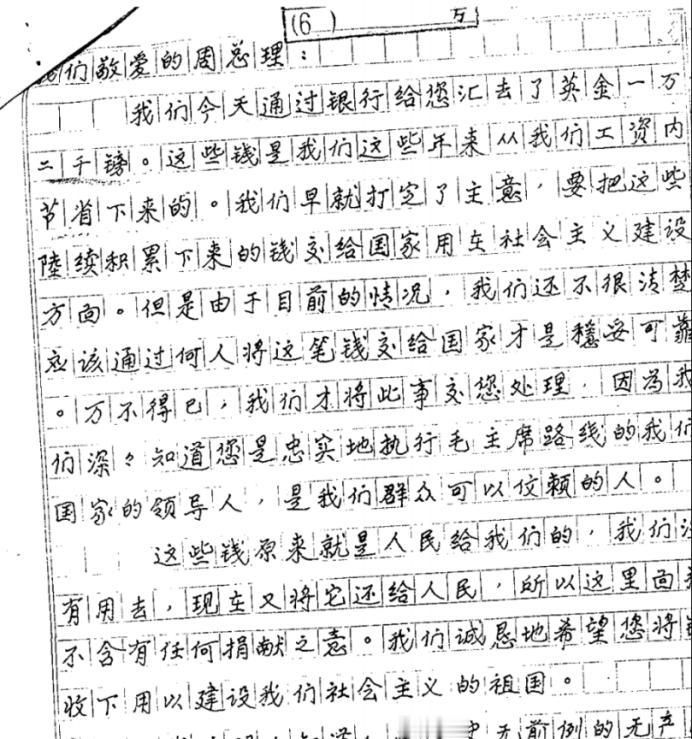 (6) 万
我们敬爱的周总理：
我们今天通过银行给您汇去了英金一万
二千镑。这些钱是我们这些年来从我们工资内
节省下来的。我们早就打定了主意，要把这些
陸续积累下来的钱交给国家用在社会主义建设
方面。但是由于目前的情况，我们还不很清楚
应该通过何人将这笔钱交给国家才是稳妥可靠
。万不得已，我们才将此事交您处理，因为我
们深々知道您是忠实地执行毛主席路线的我们
国家的领导人，是我们群众可以信赖的人。
这些钱原来就是人民给我们的，我们没
有用去，现在又将它还给人民，所以这里面
不含有任何捐献之意。我们诚恳地希望您将
收下用以建设我们社会主义的祖国。
无前例的无产